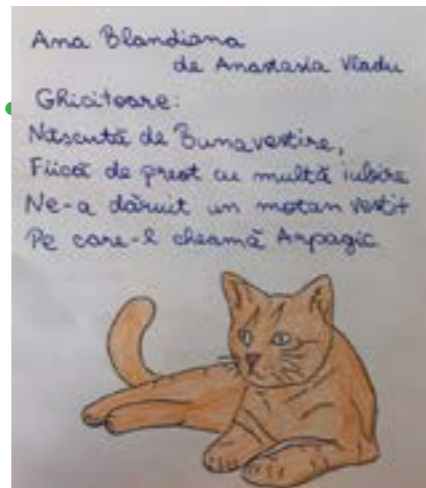 Ana Blandiana
de Anastasia Vladu
Ghicitoare:
Născută de Bunavestire,
Fiică de preot cu multă iubire
Ne-a dăruit un motan vestit
Pe care-l cheamă Arpagic.